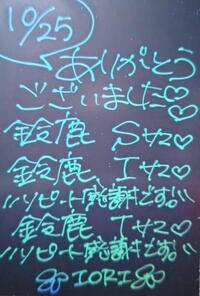 10/25
ありがとう
ございました♡♡
鈴鹿 Sサン♡
鈴鹿 Iサン♡
リピート感謝です。
鈴鹿 Tサン♡
リピート感謝です。
IORI